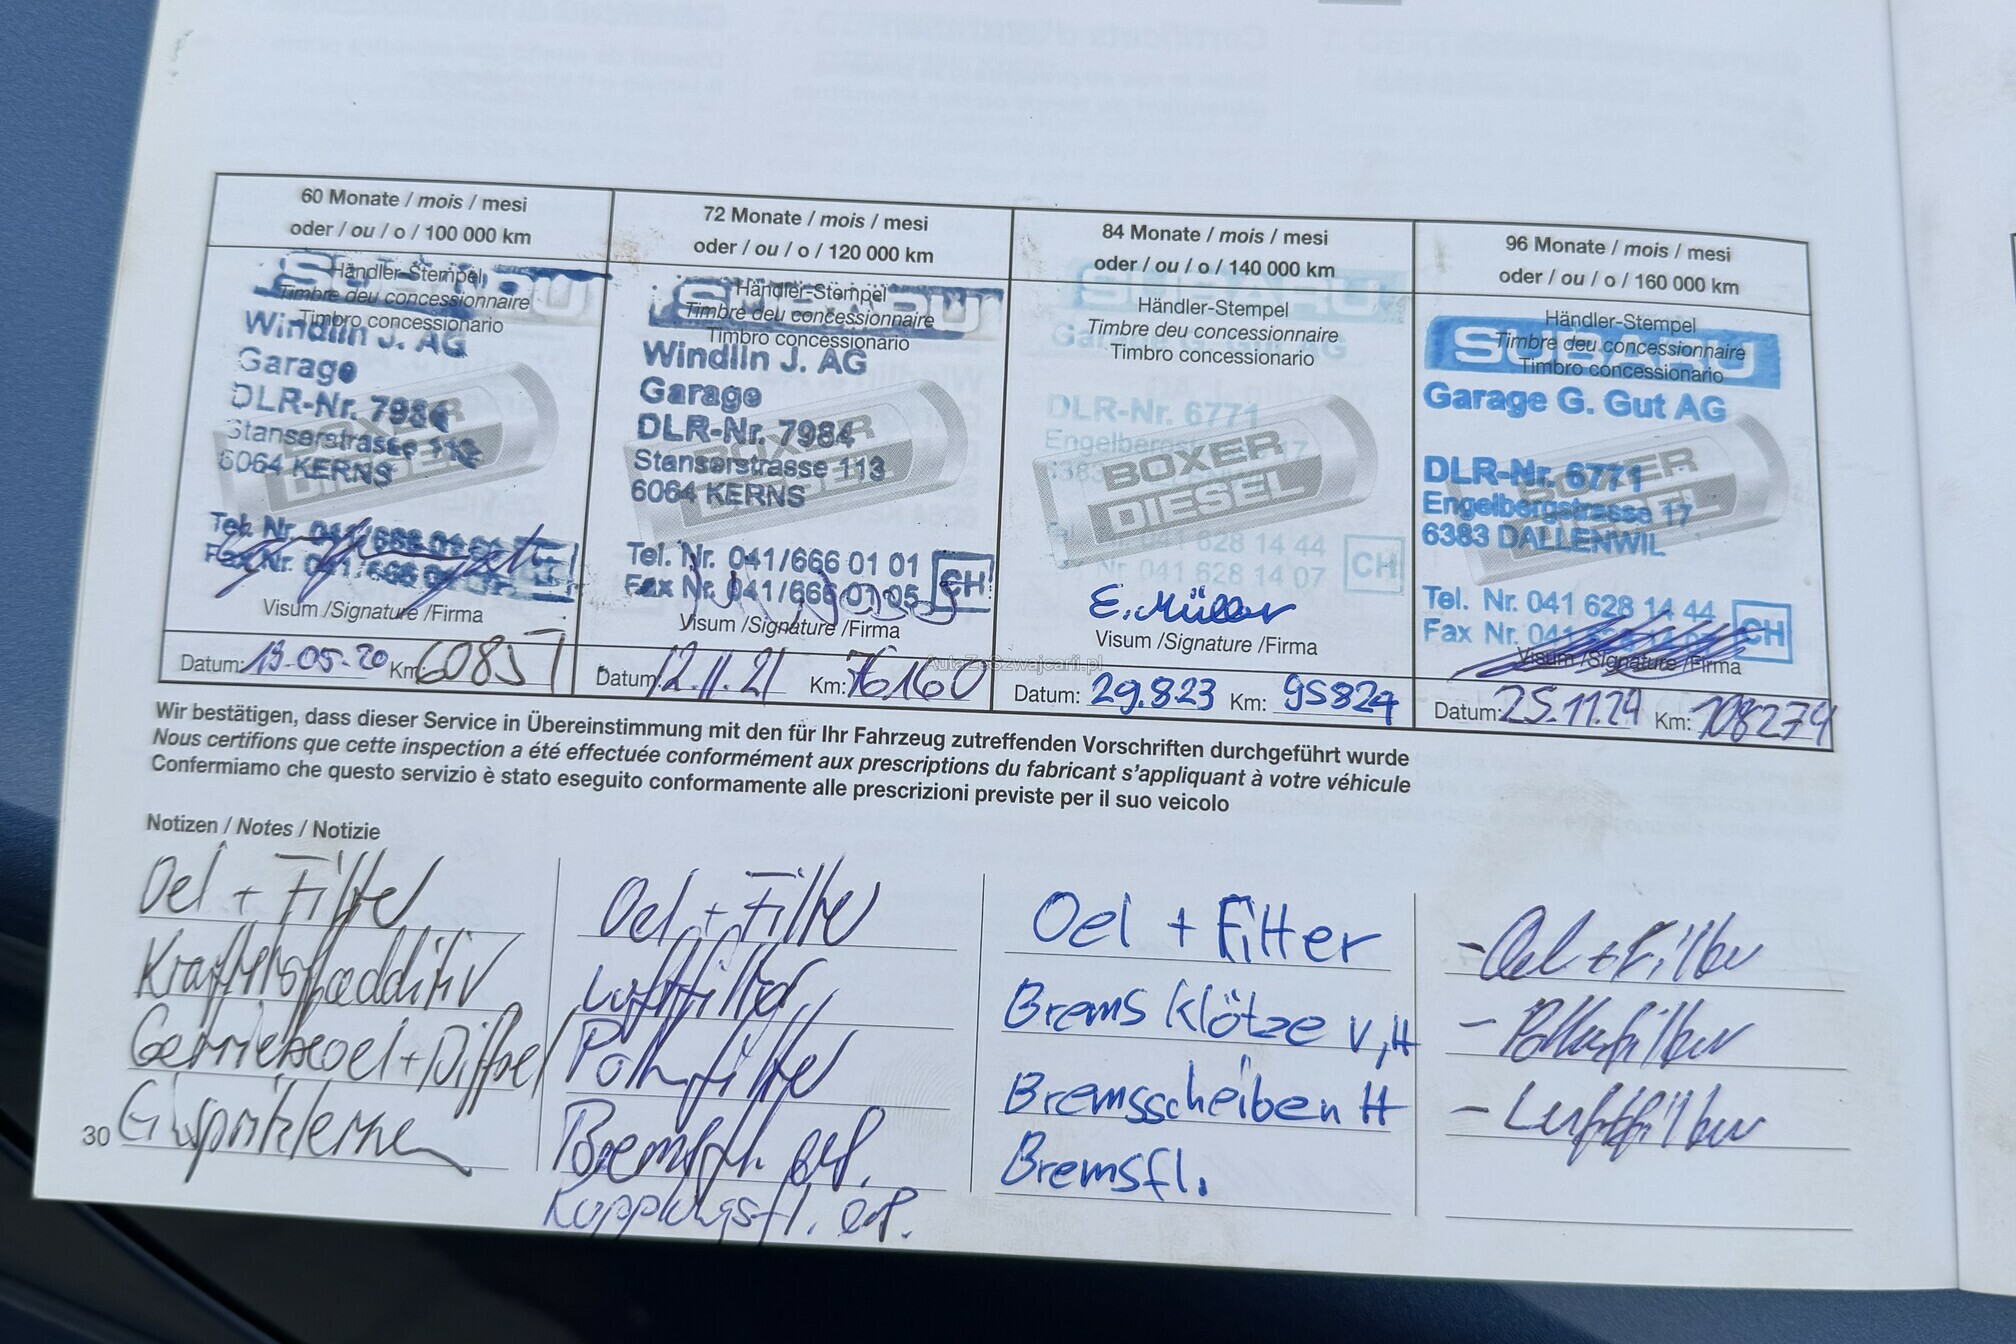 60 Monate / mois / mesi
oder / ou / o / 100 000 km
SUBARU
Händler-Stempel
Timbre deu concessionnaire
Timbro concessionario
Windlin J. AG
Garage
DLR-Nr. 7984
Stanserstrasse 113
6064 KERNS
Tel. Nr. 041/666 01 01
Fax Nr. 041/666 01 05
Visum /Signature /Firma
Datum: 19.05.20 Km: 60857
72 Monate / mois / mesi
oder / ou / o / 120 000 km
SUBARU
Händler-Stempel
Timbre deu concessionnaire
Timbro concessionario
Windlin J. AG
Garage
DLR-Nr. 7984
Stanserstrasse 113
6064 KERNS
BOXER
DIESEL
Tel. Nr. 041/666 01 01
Fax Nr. 041/666 01 05 CH
Visum /Signature /Firma
Datum: 12.11.21 Km: 76160
84 Monate / mois / mesi
oder / ou / o / 140 000 km
SUBARU
Händler-Stempel
Timbre deu concessionnaire
Timbro concessionario
Garage G. Gut AG
DLR-Nr. 6771
Engelbergstrasse 17
6383
BOXER
DIESEL
Tel. Nr. 041 628 14 44
Fax Nr. 041 628 14 07 CH
E. Müller
Visum /Signature /Firma
Datum: 29.8.23 Km: 95824
96 Monate / mois / mesi
oder / ou / o / 160 000 km
SUBARU
Händler-Stempel
Timbre deu concessionnaire
Timbro concessionario
Garage G. Gut AG
DLR-Nr. 6771
Engelbergstrasse 17
6383 DALLENWIL
BOXER
DIESEL
Tel. Nr. 041 628 14 44
Fax Nr. 041 628 14 07 CH
Visum /Signature /Firma
Datum: 25.11.24 Km: 108274
AutaZeSzwajcarii.pl
Wir bestätigen, dass dieser Service in Übereinstimmung mit den für Ihr Fahrzeug zutreffenden Vorschriften durchgeführt wurde
Nous certifions que cette inspection a été effectuée conformément aux prescriptions du fabricant s'appliquant à votre véhicule
Confermiamo che questo servizio è stato eseguito conformamente alle prescrizioni previste per il suo veicolo
Notizen / Notes / Notizie
Oel + Filter
Kraftstoffadditiv
Getriebeoel + Diffoel
Oel + Filter
Luftfilter
Pollenfilter
Bremsfl. ers.
Kupplungsfl. ers.
Oel + Filter
Brems Klötze V, H
Bremsscheiben H
Bremsfl.
- Oel + Filter
- Pollenfilter
- Luftfilter
30